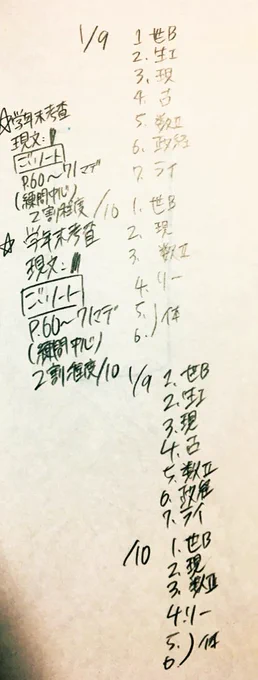 1/9
1 世B
2. 生I
3. 現
4. 古
5. 数II
6. 政経
7. ライ
☆学年末考査
現文:
ごいノート
P.60〜71マデ
2割程度
/10
1. 世B
2. 現
3. 数II
4. リー
5.
6. ) 体
☆ 学年末考査
現文:
ごいノート
P.60〜71マデ
2割程度
1/9
1. 世B
2. 生I
3. 現
4. 古
5. 数II
6. 政経
7. ライ
/10
1. 世B
2. 現
3. 数II
4. リー
5.
6. ) 体